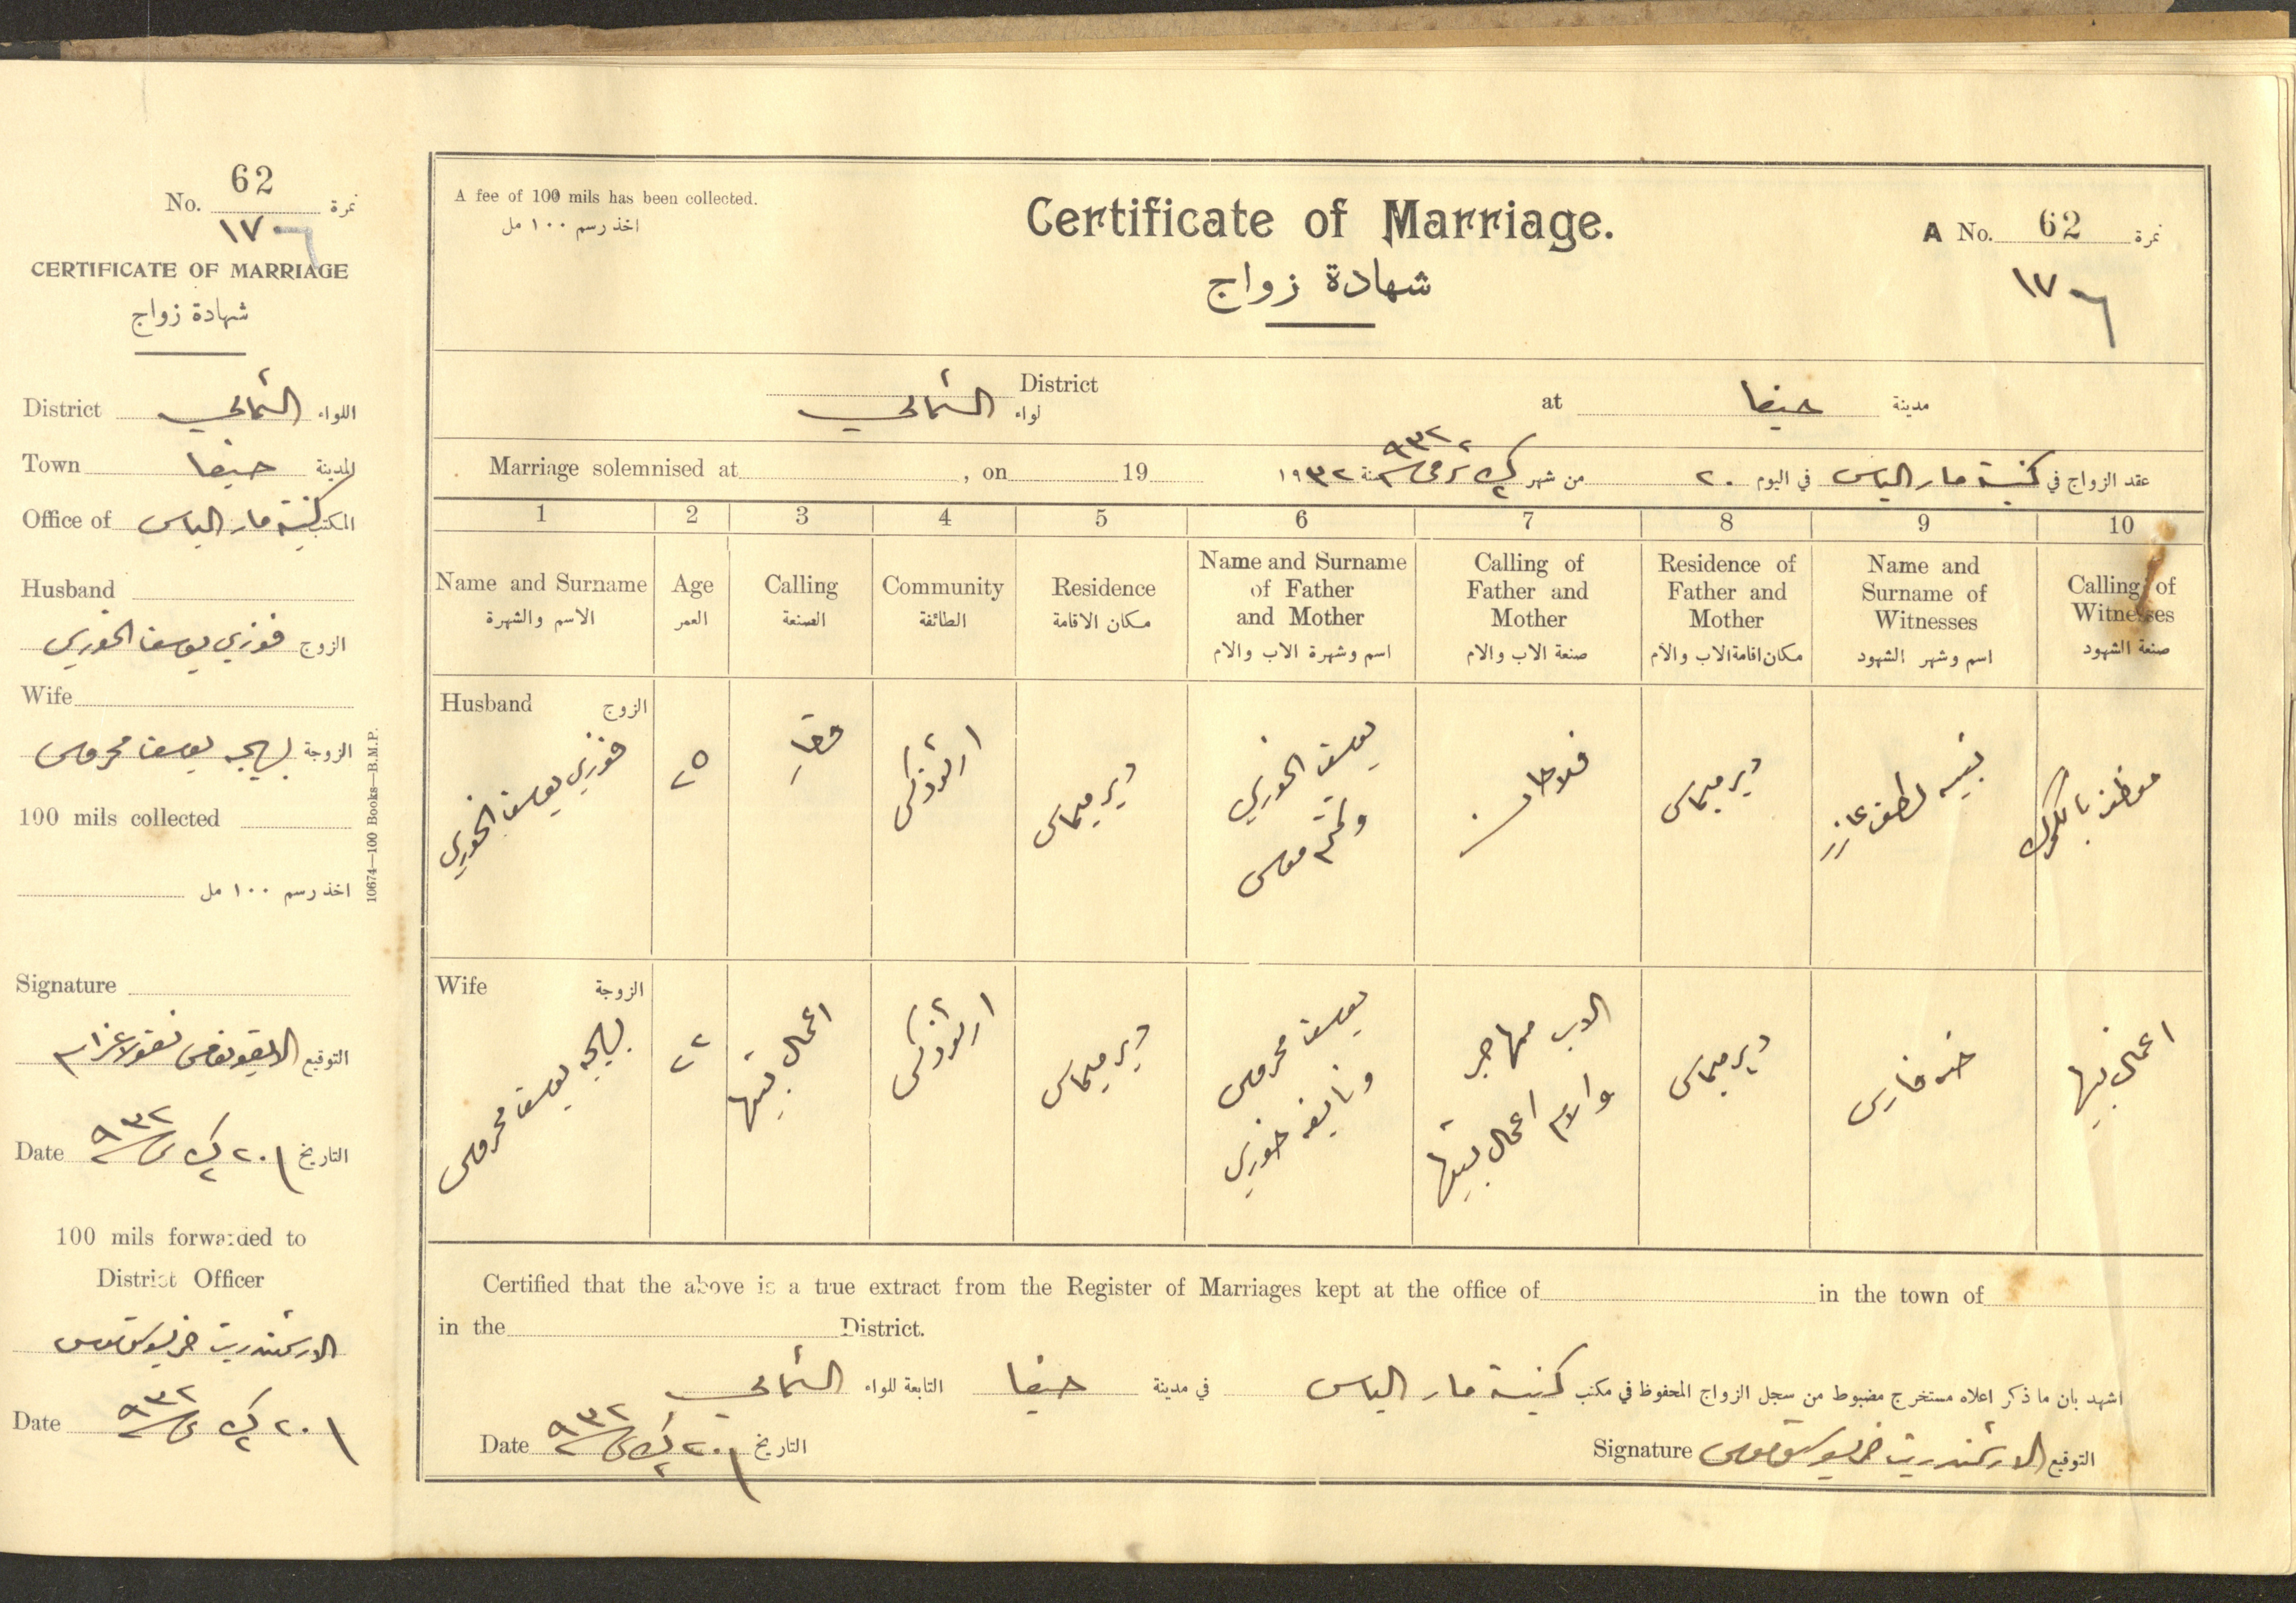 No. 62 نمرة
١٧٦
CERTIFICATE OF MARRIAGE
شهادة زواج
District الشمالي اللواء
Town حيفا المدينة
Office of كنيسة مار الياس المكتب
Husband
الزوج فوزي يوسف الخوري
Wife
الزوجة بهيجه يوسف
100 mils collected
اخذ رسم ١٠٠ مل
Signature
التوقيع الايقونوموس نقولا
Date التاريخ ٢٠ ك٢ ٩٣٢
100 mils forwarded to
District Officer
الارشمندريت
Date ٢٠ ك٢ ٩٣٢
10674—100 Books—B.M.P.
A fee of 100 mils has been collected.
اخذ رسم ١٠٠ مل
Certificate of Marriage.
شهادة زواج
A No. 62 نمرة
١٧٦
District
لواء الشمالي
at حيفا مدينة
Marriage solemnised at , on 19
عقد الزواج في كنيسة مار الياس في اليوم ٢٠ من شهر ك٢ سنة ١٩٣٢
٩٣٢
1 2 3 4 5 6 7 8 9 10
Name and Surname
الاسم والشهرة
Age
العمر
Calling
الصنعة
Community
الطائفة
Residence
مكان الاقامة
Name and Surname
of Father
and Mother
اسم وشهرة الاب والام
Calling of
Father and
Mother
صنعة الاب والام
Residence of
Father and
Mother
مكان اقامة الاب والام
Name and
Surname of
Witnesses
اسم وشهر الشهود
Calling of
Witnesses
صنعة الشهود
Husband الزوج
فوزي يوسف الخوري
٢٥
ارثوذكس
دير ميماس
يوسف الخوري
موسى
فلاحان
دير ميماس
لطف
موظف بالكمرك
Wife الزوجة
بهيجه يوسف
٢٢
اعمال بيتها
ارثوذكس
دير ميماس
يوسف
ونايفه خوري
الاب مهاجر
والام اعمال بيتها
دير ميماس
فارس
اعمال بيتها
Certified that the above is a true extract from the Register of Marriages kept at the office of in the town of
in the District.
اشهد بان ما ذكر اعلاه مستخرج مضبوط من سجل الزواج المحفوظ في مكتب كنيسة مار الياس في مدينة حيفا التابعة للواء الشمالي
Date التاريخ ٢٠ ك٢ ٩٣٢
Signature التوقيع الارشمندريت